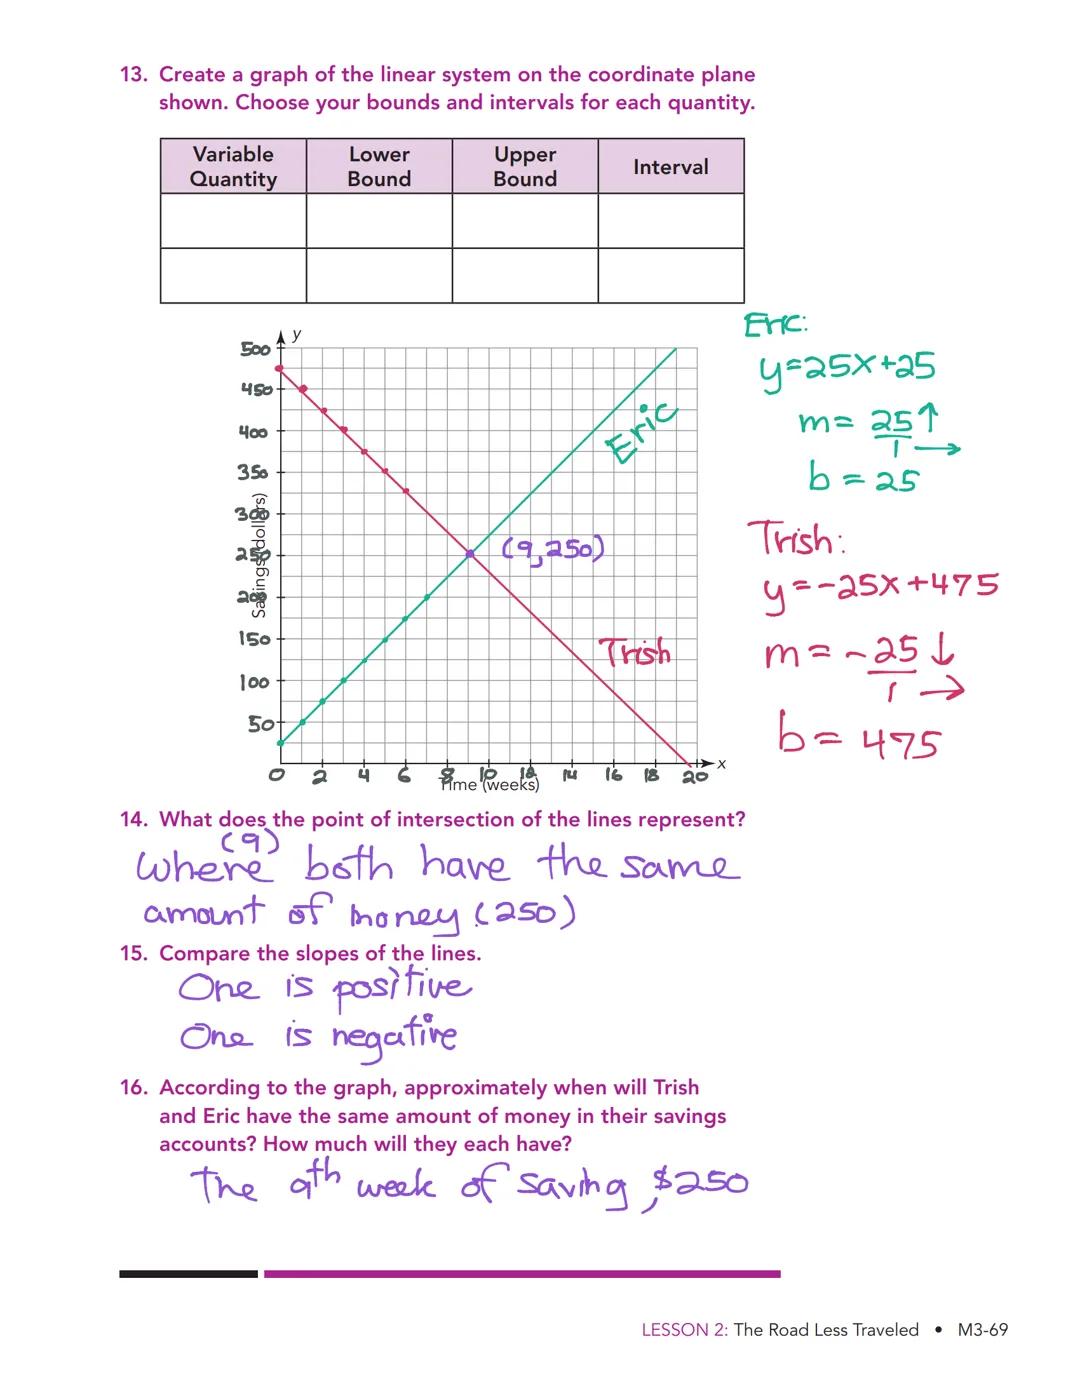 13. Create a graph of the linear system on the coordinate plane
shown. Choose your bounds and intervals for each quantity.
Variable Quantity Lower Bound Upper Bound Interval
Eric:
y=25x+25
m= 25↑
1→
b = 25
Trish:
y=-25x+475
m= -25↓
1 →
b= 475
y
500
450
400
350
300
250
200
150
100
50
Savings (dollars)
Eric
(9,250)
Trish
0 2 4 6 8 10 12 14 16 18 20 x
Time (weeks)
14. What does the point of intersection of the lines represent?
(9)
Where both have the same
amount of money (250)
15. Compare the slopes of the lines.
One is positive
One is negative
16. According to the graph, approximately when will Trish
and Eric have the same amount of money in their savings
accounts? How much will they each have?
The 9th week of saving, $250
LESSON 2: The Road Less Traveled • M3-69